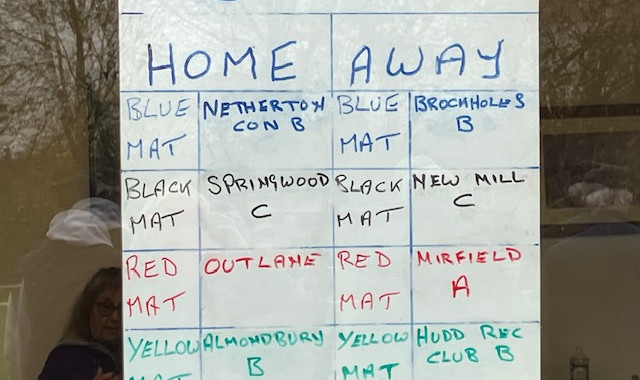 HOME AWAY
BLUE MAT NETHERTON CON B BLUE MAT BROCKHOLES B
BLACK MAT SPRINGWOOD C BLACK MAT NEW MILL C
RED MAT OUTLANE RED MAT MIRFIELD A
YELLOW MAT ALMONDBURY B YELLOW MAT HUDD REC CLUB B